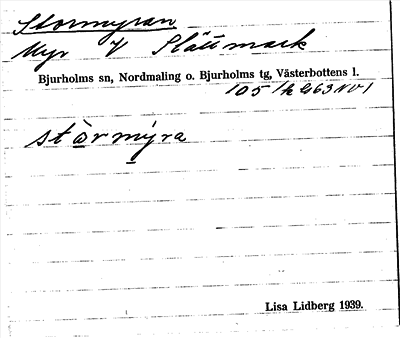 Stormyran
Myr V Slättmark
Bjurholms sn, Nordmaling o. Bjurholms tg, Västerbottens l.
stòrmýra
Lisa Lidberg 1939.